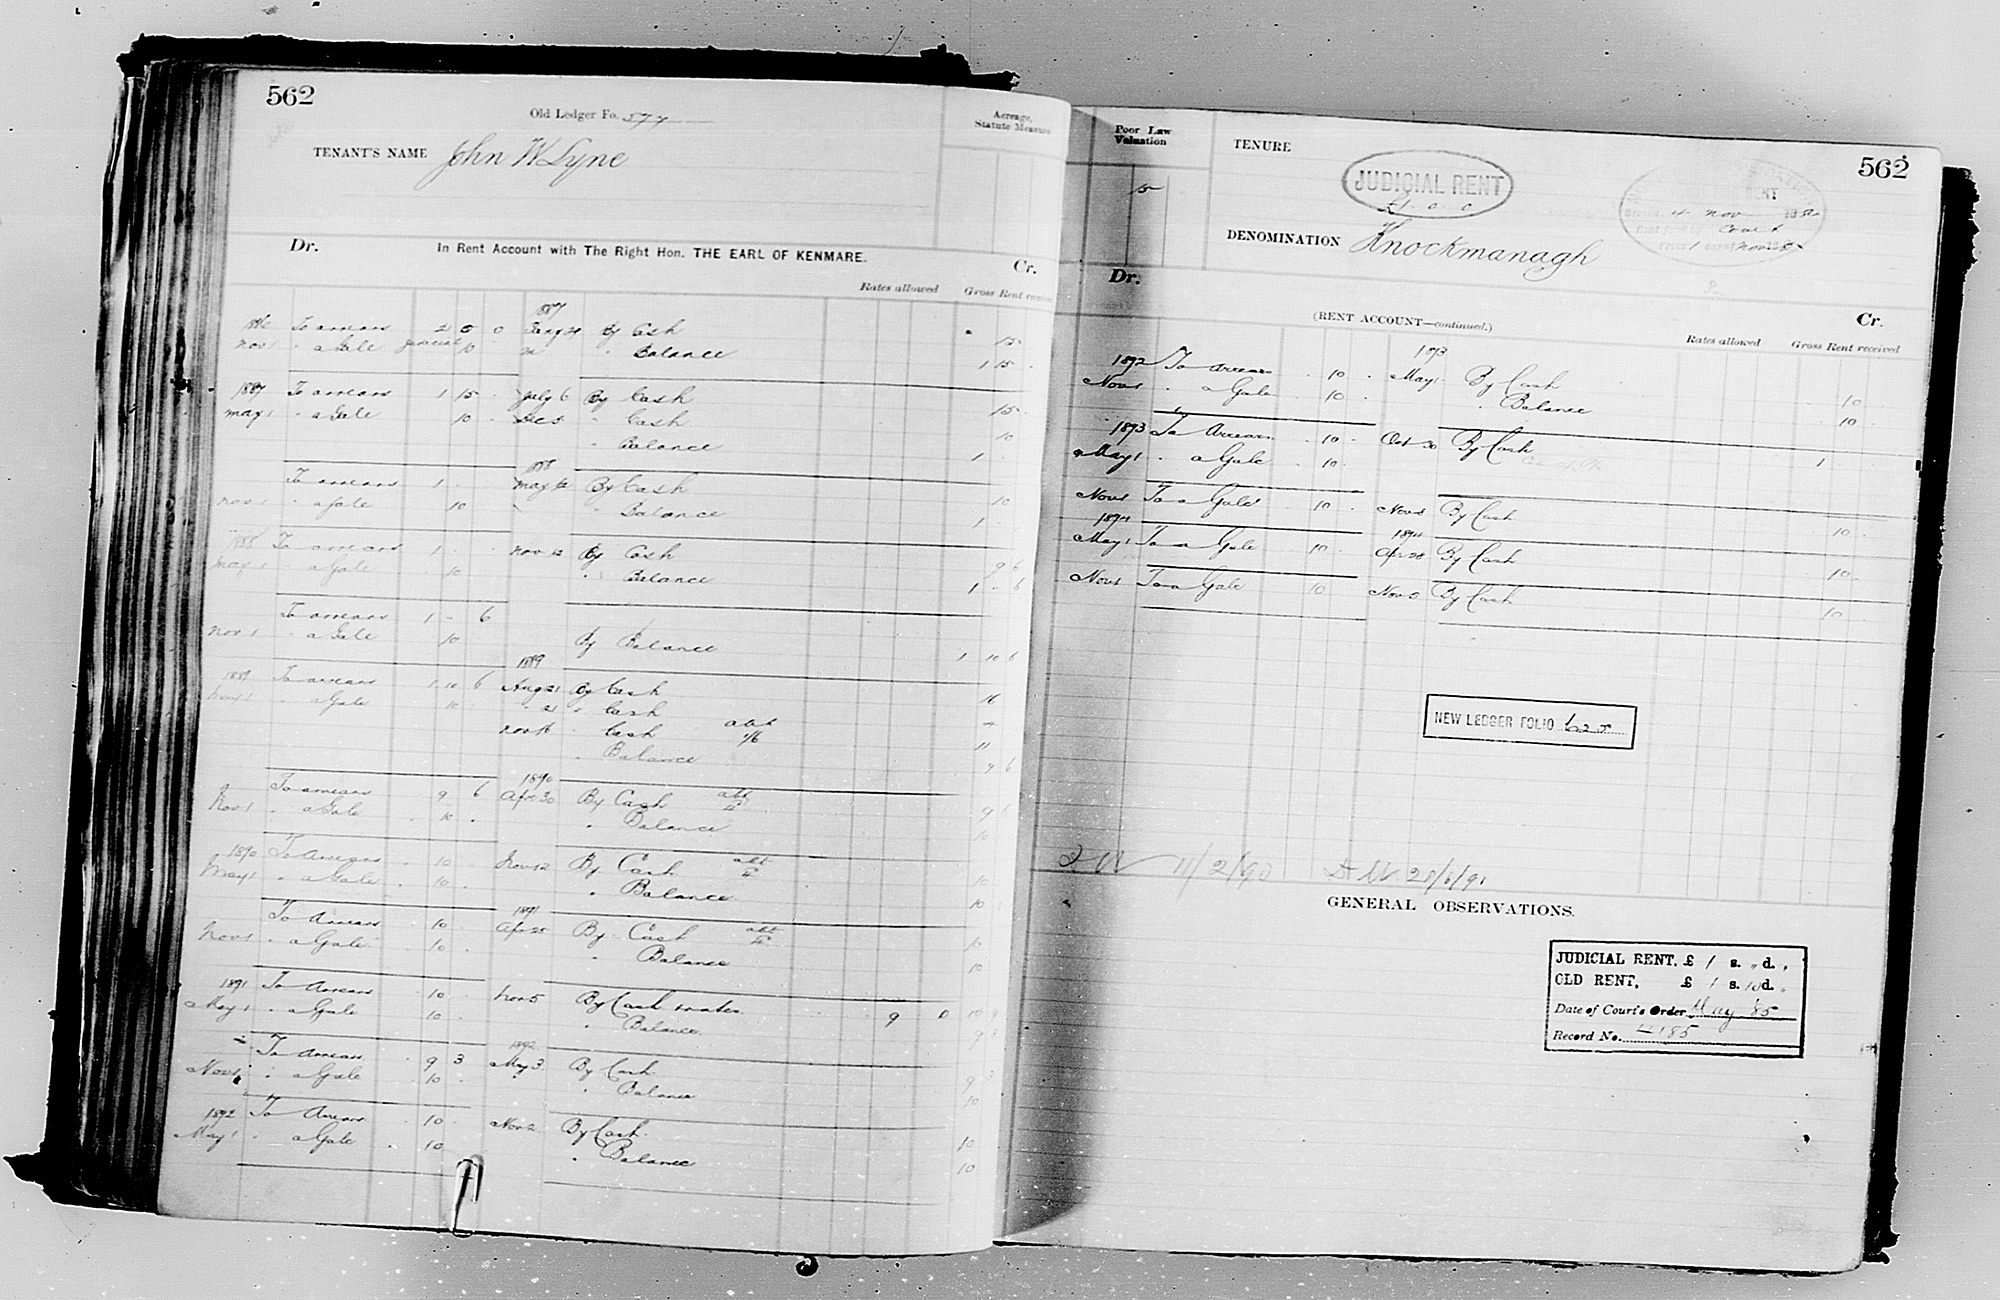 562
Old Ledger Fo. 577
Acreage, Statute Measure
TENANT'S NAME John W Lyne
Dr. In Rent Account with The Right Hon. THE EARL OF KENMARE. Cr.
Rates allowed Gross Rent
1887
1886 To arrears 2 5 0 By Cash 15
Nov 1 " a Gale judicial 10 " Balance 1 15
1887 To arrears 1 15 July 6 By Cash 15
May 1 " a Gale 10 Dec 5 " Cash 10
" Balance 1
1888
To arrears 1 May 12 By Cash 10
Nov 1 " a Gale 10 " Balance 1
1888 To arrears 1 Nov 12 By Cash 9 6
May 1 " a Gale 10 " Balance 1 - 6
To arrears 1 - 6
Nov 1 " a Gale 10 By Balance 1 10 6
1889
1889 To arrears 1 10 6 Aug 21 By Cash 16
May 1 " a Gale 10 " 21 " Cash 4
Nov 16 " Cash 11
" Balance 9 6
1890
To arrears 9 6 Apr 30 By Cash 9 6
Nov 1 " a Gale 10 " Balance 10
1890 To Arrears 10 Nov 12 By Cash 10
May 1 " a Gale 10 " Balance 10
1891
To Arrears 10 Apr 25 By Cash 10
Nov 1 " a Gale 10 " Balance 10
1891 To Arrears 10 Nov 5 By Cash & rates 9 10
May 1 " a Gale 10 " Balance 9 3
1892
To Arrears 9 3 May 3 By Cash 9 3
Nov 1 " a Gale 10 " Balance 10
1892 To Arrears 10 Nov 2 By Cash 10
May 1 " a Gale 10 " Balance 10
Poor Law Valuation
5
TENURE
JUDICIAL RENT
£1-0-0
562
RENT
4 Nov
Court
DENOMINATION Knockmanagh
Dr. (RENT ACCOUNT—continued.) Cr.
Rates allowed Gross Rent received
1893
1892 To Arrears 10 May 1 By Cash 10
Nov 1 " a Gale 10 " Balance 10
1893 To Arrears 10 Oct 30 By Cash 1
May 1 " a Gale 10
Nov 1 To a Gale 10 Nov 8 By Cash 10
1894 1894
May 1 To a Gale 10 Apr 28 By Cash 10
Nov 1 To a Gale 10 Nov 5 By Cash 10
NEW LEDGER FOLIO 625
11/2/90 28/1/91
GENERAL OBSERVATIONS.
JUDICIAL RENT, £ 1 s. " d. "
OLD RENT, £ 1 s. 10 d. "
Date of Court's Order May '85
Record No. 4185